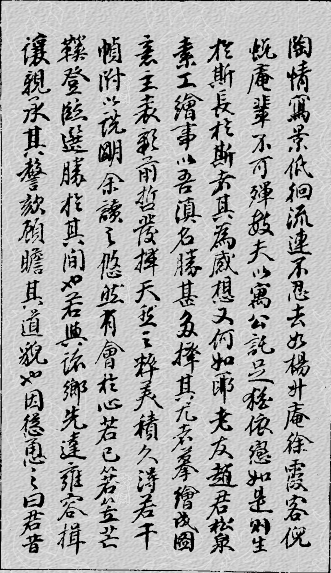 陶情寫景低徊流連不忍去如楊升庵徐霞客倪
蛻庵輩不可殫數夫以寓公託足猶依戀如是則生
於斯長於斯者其為感想又何如耶老友趙君松泉
素工繪事以吾滇名勝甚多擇其尤者摹繪成圖
意主表彰前哲發揮天然之粹美積久得若干
幀附以說明余讀之悠然有會於心若已箬笠芒
鞵登臨選勝於其間也若與諸鄉先達雍容揖
讓親承其謦欬顧瞻其道貌也因慫恿之曰君昔